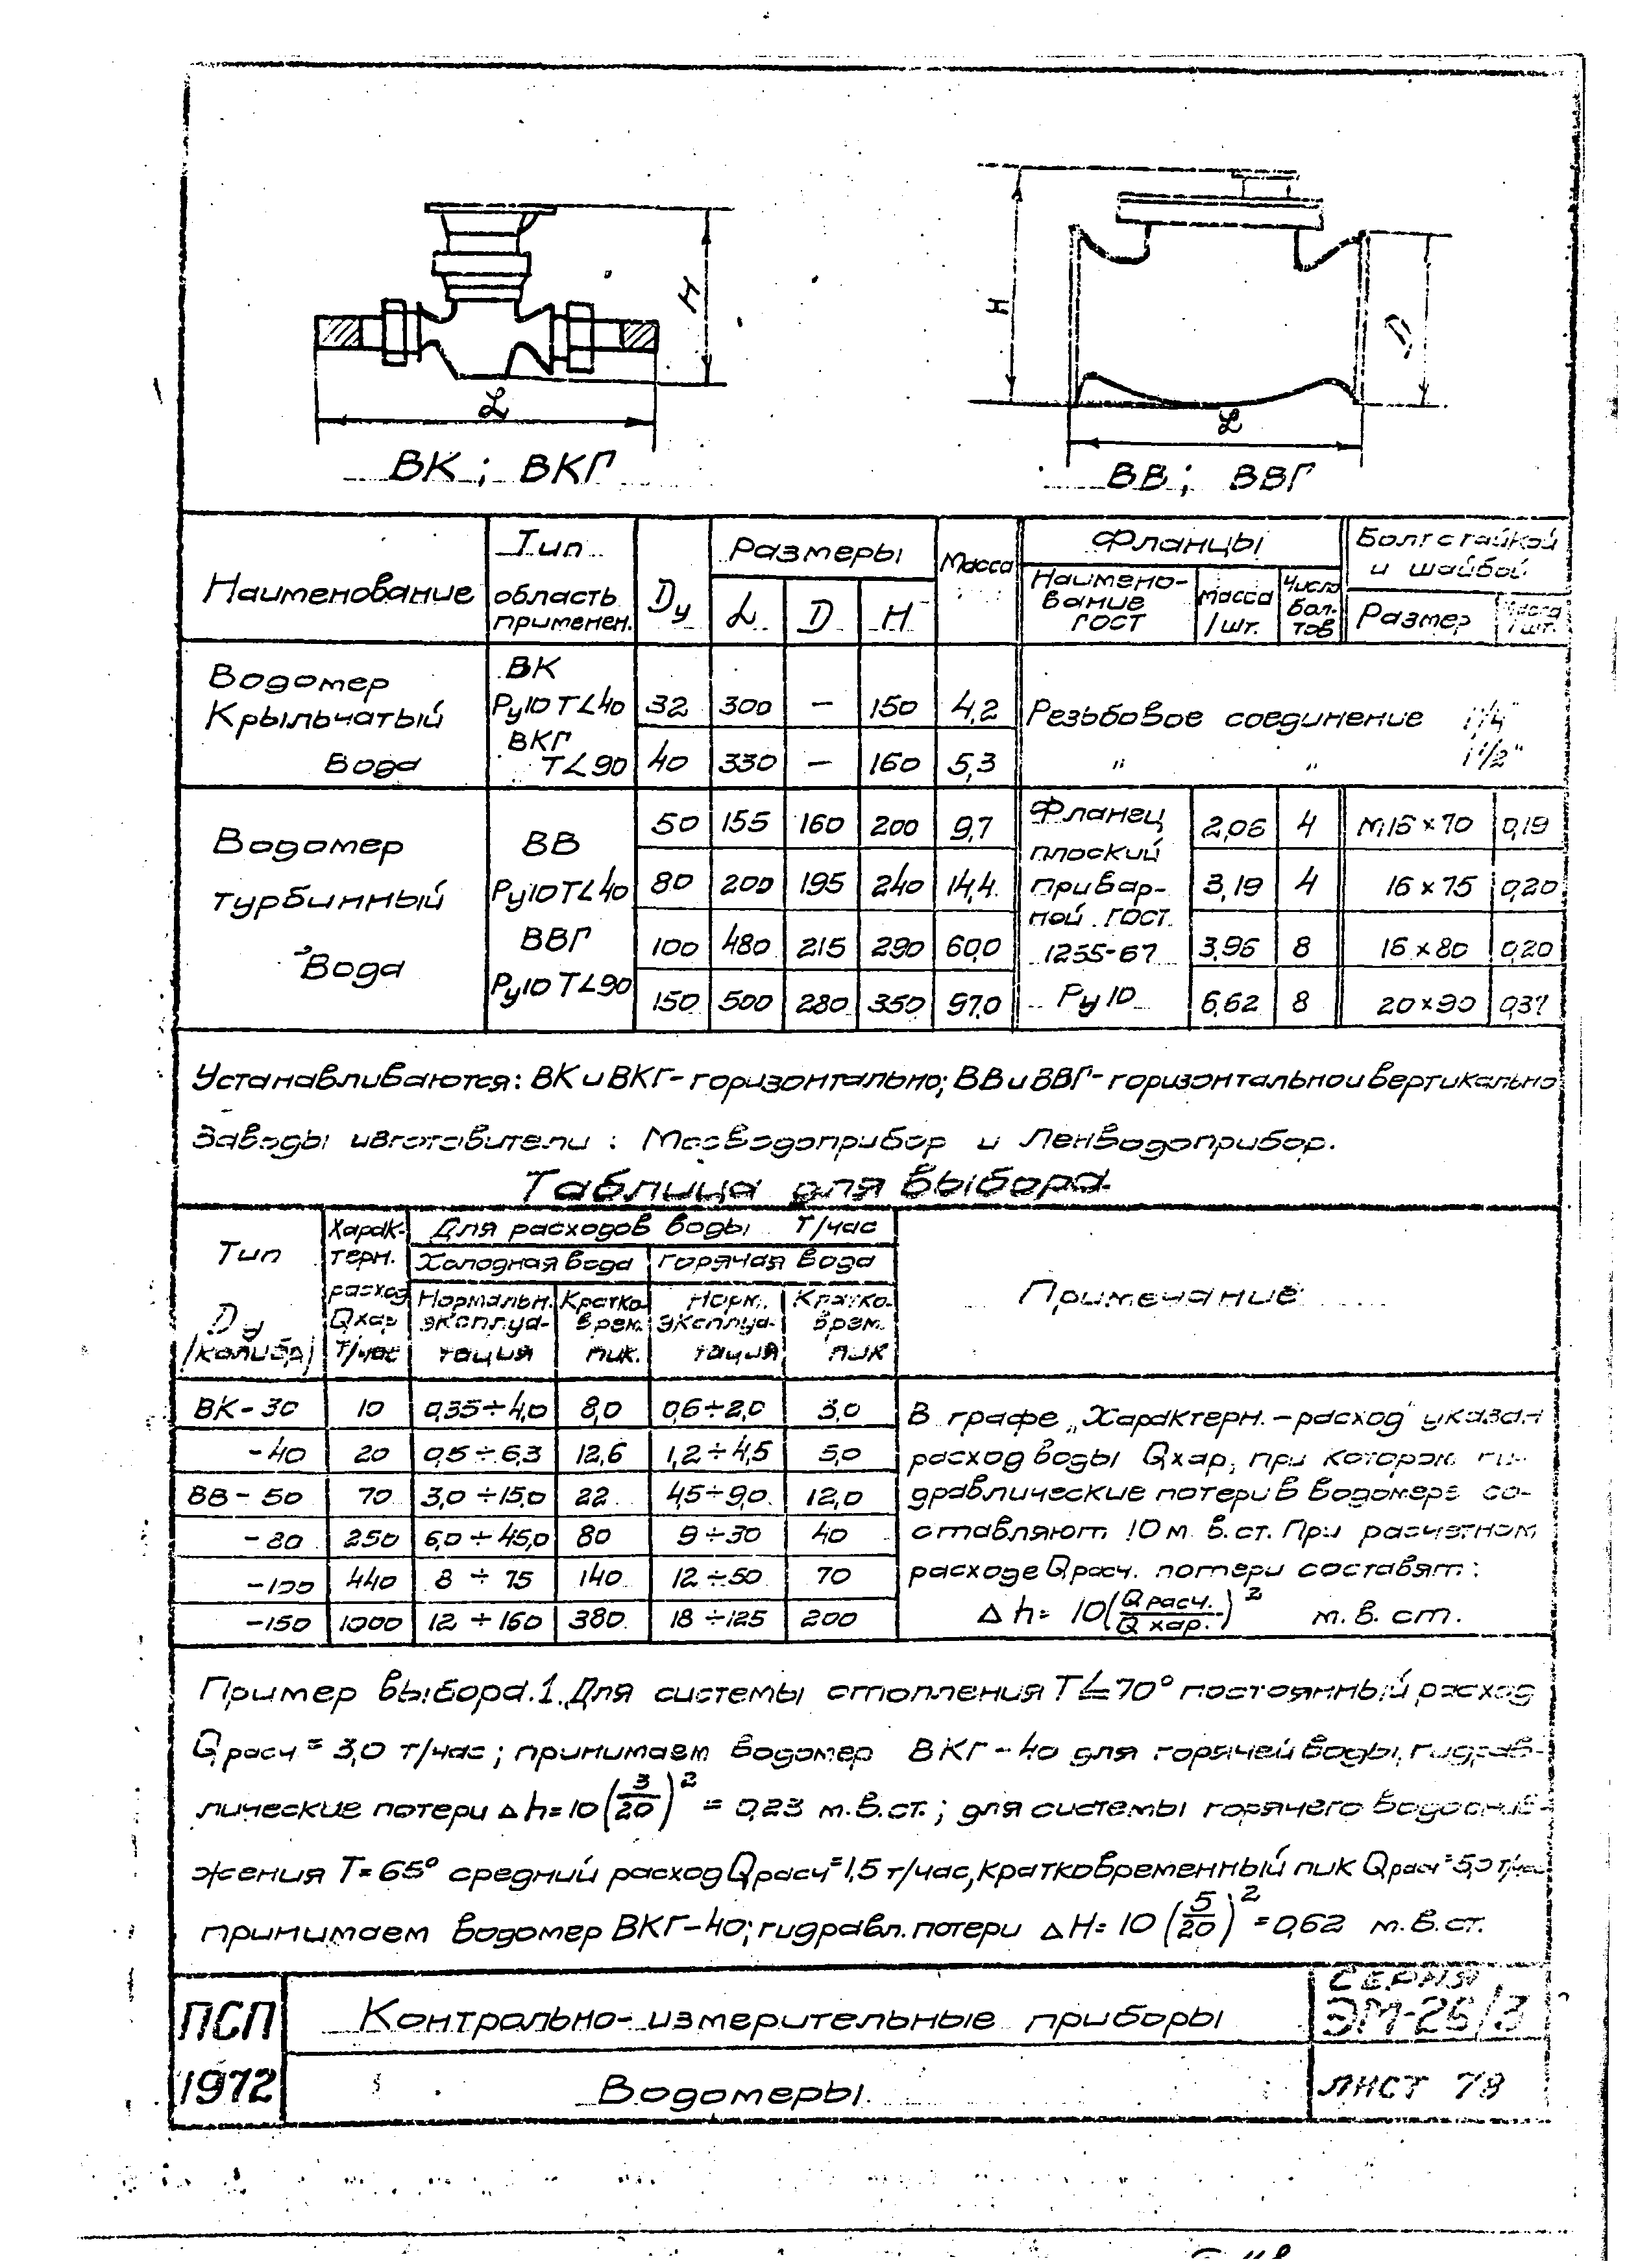 H
L
ВК ; ВКГ
H
D
L
ВВ ; ВВГ
Наименование
Тип
область
применен.
Dу
Размеры
L D H
Масса
Фланцы
Наимено-
вание
ГОСТ
Масса
1 шт.
Число
бол-
тов
Болт с гайкой
и шайбой
Размер
Масса
1 шт.
Водомер
Крыльчатый
Вода
ВК
Ру10 Т<40
ВКГ
Т<90
32 300 — 150 4,2 Резьбовое соединение 1 1/4"
40 330 — 160 5,3 " " 1 1/2"
Водомер
турбинный
Вода
ВВ
Ру10 Т<40
ВВГ
Ру10 Т<90
Фланец
плоский
привар-
ной ГОСТ
1255-67
Ру 10
50 155 160 200 9,7 2,06 4 М16×70 0,19
80 200 195 240 14,4 3,19 4 16×75 0,20
100 480 215 290 60,0 3,96 8 16×80 0,20
150 500 280 350 97,0 6,62 8 20×90 0,37
Устанавливаются: ВК и ВКГ- горизонтально; ВВ и ВВГ- горизонтально и вертикально
Заводы изготовители : Мосводоприбор и Ленводоприбор.
Таблица для выбора.
Тип
Dу
/калибр/
Харак-
терн.
расход
Qхар
т/час
Для расходов воды т/час
Холодная вода Горячая вода
Нормальн.
эксплуа-
тация
Кратко-
врем.
пик.
Норм.
эксплуа-
тация
Кратко-
врем.
пик
Примечание
ВК-30 10 0,35÷4,0 8,0 0,6÷2,0 3,0
-40 20 0,5÷6,3 12,6 1,2÷4,5 5,0
ВВ-50 70 3,0÷15,0 22 4,5÷9,0 12,0
-80 250 6,0÷45,0 80 9÷30 40
-100 440 8÷75 140 12÷50 70
-150 1000 12÷160 380 18÷125 200
В графе „Характерн.-расход" указан
расход воды Qхар, при котором ги-
дравлические потери в водомере со-
ставляют 10 м. в. ст. При расчетном
расходе Q расч. потери составят:
Δ h = 10(Q расч./Q хар.)² м. в. ст.
Пример выбора. 1. Для системы отопления Т≤70° постоянный расход
Q расч = 3,0 т/час; принимаем водомер ВКГ-40 для горячей воды, гидрав-
лические потери Δ h = 10(3/20)² = 0,23 м.в.ст.; для системы горячего водосна-
жения Т=65° средний расход Qрасч=1,5 т/час, кратковременный пик Qрасч=5,0 т/час
принимаем водомер ВКГ-40; гидравл. потери Δ H = 10(5/20)² = 0,62 м. в. ст.
ПСП
1972
Контрольно-измерительные приборы
Водомеры
СЕРИЯ
ЭМ-26/3
ЛИСТ 78